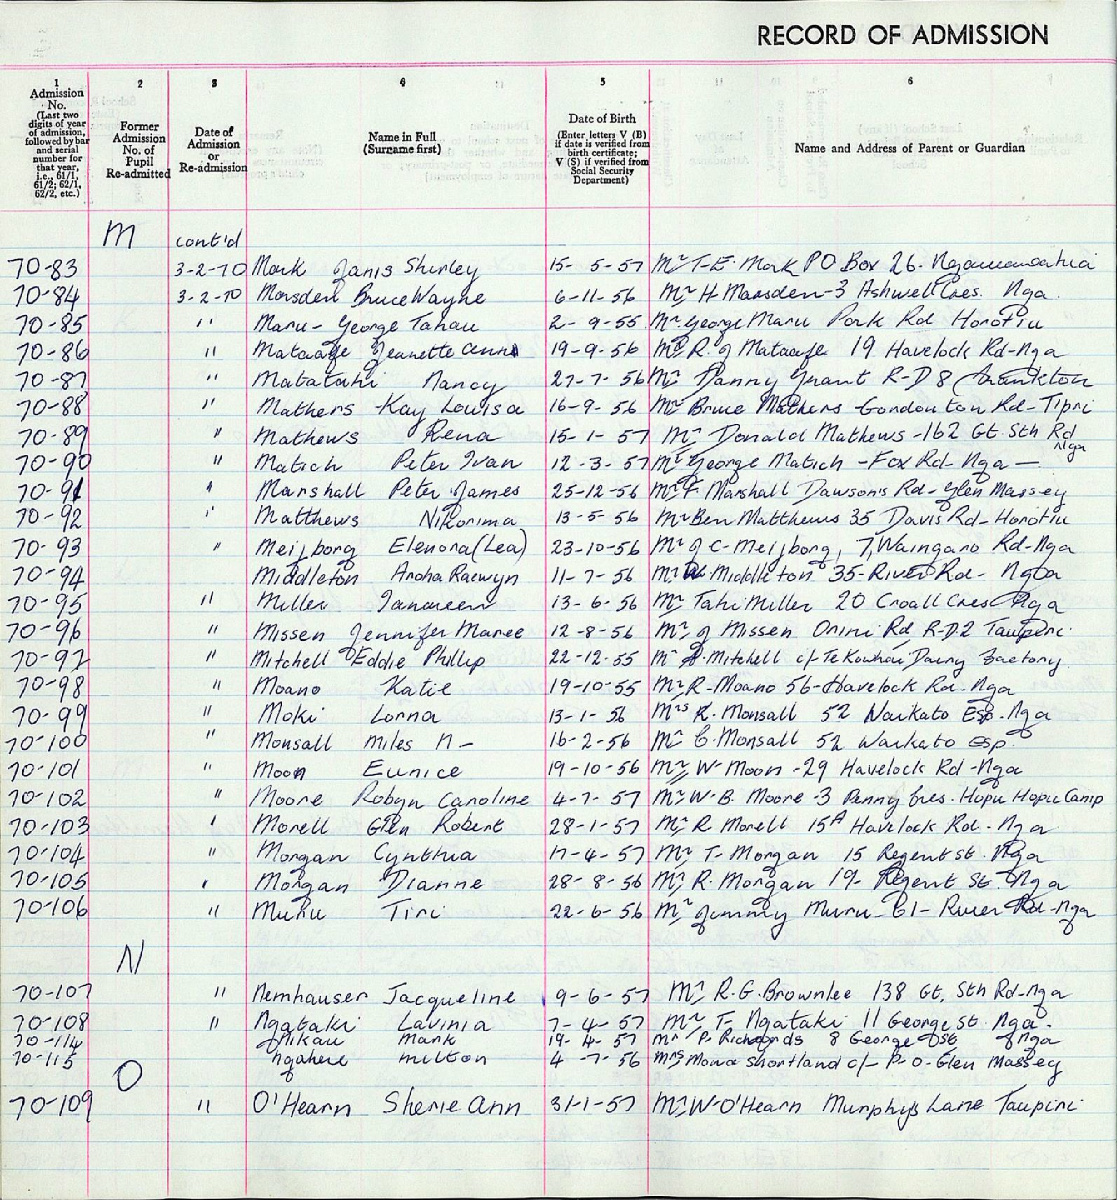 RECORD OF ADMISSION
1 2 3 4 5 6
Admission No. (Last two digits of year of admission, followed by bar and serial number for that year, i.e., 61/1, 61/2; 62/1, 62/2, etc.)
Former Admission No. of Pupil Re-admitted
Date of Admission or Re-admission
Name in Full (Surname first)
Date of Birth (Enter letters V (B) if date is verified from birth certificate; V (S) if verified from Social Security Department)
Name and Address of Parent or Guardian
M cont'd
70-83 3-2-70 Mark Janis Shirley 15-5-57 Mr T-E Mark PO Box 26. Ngaruawahia
70-84 3-2-70 Marsden Bruce Wayne 6-11-56 Mr H Marsden-3 Ashwell Cres. Nga
70-85 " Maru- George Tahau 2-9-55 Mr George Maru Park Rd Horotiu
70-86 " Jeanette Anne 19-9-56 Mr R. J 19 Havelock Rd-Nga
70-87 " Matatahi Nancy 27-7-56 Mr Danny Grant R-D 8
70-88 " Mathers Kay Louisa 16-9-56 Mr Bruce Mathers Gordonton Rd-Tpri
70-89 " Mathews Rena 15-1-57 Mr Donald Mathews-162 Gt. Sth Rd Nga
70-90 " Matich Peter Ivan 12-3-57 Mr George Matich-Fox Rd-Nga-
70-91 " Marshall Peter James 25-12-56 Mr F. Marshall Dawson's Rd-Glen Massey
70-92 " Matthews Nikorima 13-5-56 Mr Ben Matthews 35 Davis Rd-Horotiu
70-93 " Meijborg Elenora (Lea) 23-10-56 Mr J C-Meijborg, 7, Waingaro Rd-Nga
70-94 " Middleton Aroha Raewyn 11-7-56 Mr W Middleton 35-River Rd- Nga
70-95 " Miller 13-6-56 Mr Tahi Miller 20 Croall Cres Nga
70-96 " Missen Jennifer Maree 12-8-56 Mr J Missen Orini Rd R-D.2 Taupiri
70-97 " Mitchell Eddie Phillip 22-12-55 Mr Mitchell c/- Te Kowhai Dairy Factory
70-98 " Moano Katie 19-10-55 Mr R-Moano 56-Havelock Rd-Nga
70-99 " Moki Lorna 13-1-56 Mrs R. Monsall 52 Waikato Esp-Nga
70-100 " Monsall Miles N- 16-2-56 Mr C. Monsall 52 Waikato Esp.
70-101 " Moon Eunice 19-10-56 Mr W-Moon-29 Havelock Rd-Nga
70-102 " Moore Robyn Caroline 4-7-57 Mr W-B. Moore-3 Penny Cres-Hopu Hopu Camp
70-103 " Morell Glen Robert 28-1-57 Mr R Morell 15A Havelock Rd-Nga
70-104 " Morgan Cynthia 17-4-57 Mr T-Morgan 15 Regent St. Nga
70-105 " Morgan Dianne 28-8-56 Mr R. Morgan 19-Regent St-Nga
70-106 " Muru Tiri 22-6-56 Mr Jimmy Muru-61-River Rd-Nga
N
70-107 " Nemhauser Jacqueline 9-6-57 Mr R-G.Brownlee 138 Gt. Sth Rd-Nga
70-108 " Ngataki Lavinia 7-4-57 Mr T-Ngataki 11 George St. Nga.
70-114 Nikau Mark 19-4-57 Mr P. Richards 8 George St Nga
70-115 Ngahere Milton 4-7-56 Mrs Mowa Shortland c/- P-O-Glen Massey
O
70-109 " O'Hearn Sherie Ann 31-1-57 Mr W-O'Hearn Murphys Lane Taupiri